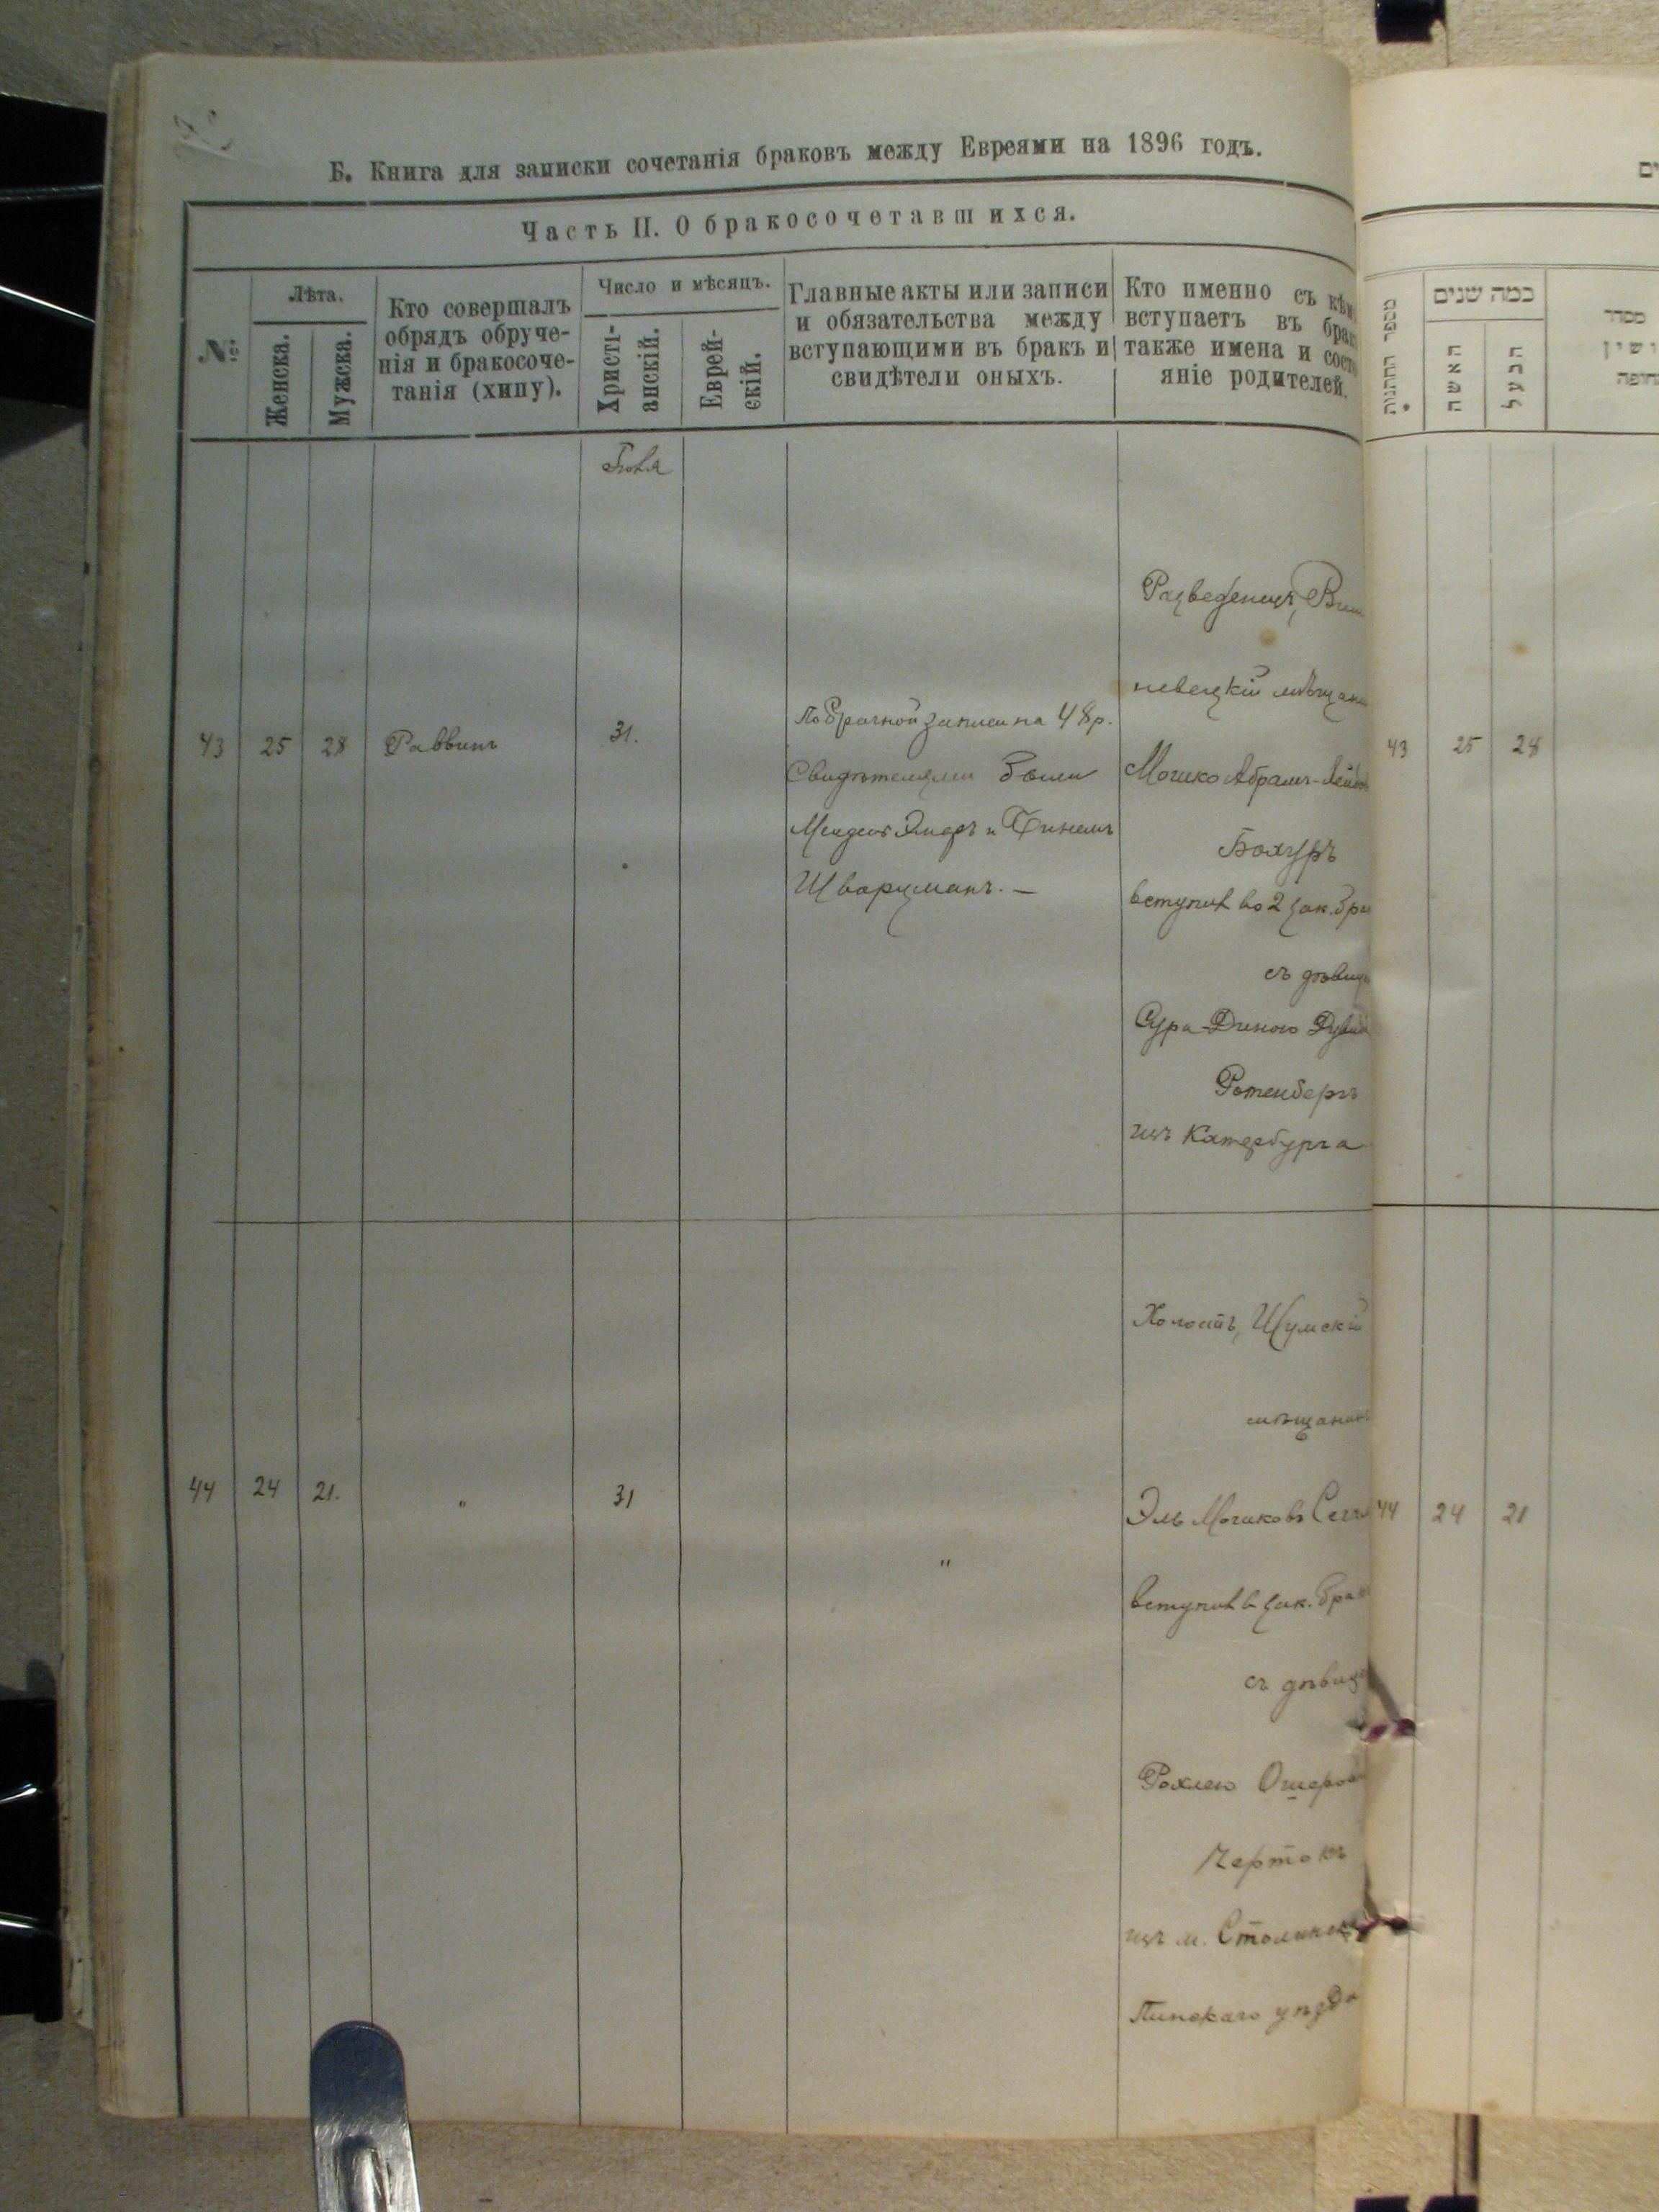 Б. Книга для записки сочетанія браковъ между Евреями на 1896 годъ.
Часть II. О бракосочетавшихся.
№
Лѣта.
Женска.
Мужска.
Кто совершалъ
обрядъ обруче-
нія и бракосоче-
танія (хипу).
Число и мѣсяцъ.
Христі-
анскій.
Еврей-
скій.
Главные акты или записи
и обязательства между
вступающими въ бракъ и
свидѣтели оныхъ.
Кто именно съ кѣм
вступаетъ въ брак
также имена и состо
яніе родителей.
43 25 28 Раввинъ 31.
По брачной записи на 48 р.
Свидѣтелями были
Мендель и
Шварцманъ. —
Разведенецъ, Виш
невецкій мѣщани
Мошко Абрамъ-Лейбов
Бохуръ
вступил во 2 зак. бра
съ дѣвиц
Сура-Диною
Ротенбергъ
изъ Катербурга
44 24 21. " 31 "
Холостъ, Шумскій
мѣщанинъ
Эль Мошковъ
вступил в зак. брак
съ дѣвице
Рохлею Ошеров
Чертокъ
изъ м.
Пинскаго уѣзда
מספר החתנות
כמה שנים
האשה
הבעל
מסדר
43 25 28
44 24 21